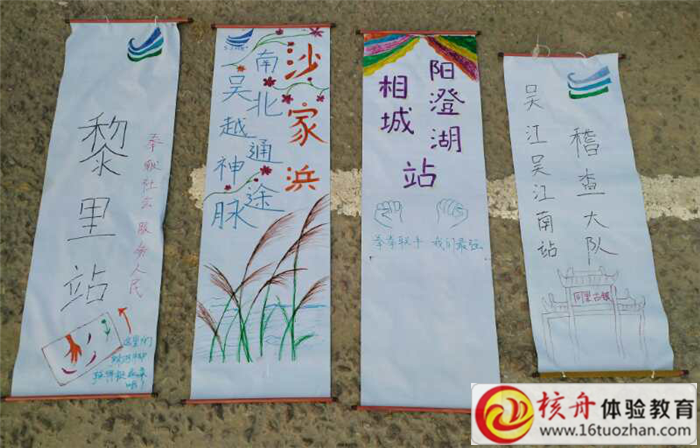 黎里站
奉献社会 服务人民
沙家浜
南北通途
吴越神脉
阳澄湖
相城站
我们最强
稽查大队
吴江吴江南站
同里古镇
核舟体验教育
www.16tuozhan.com